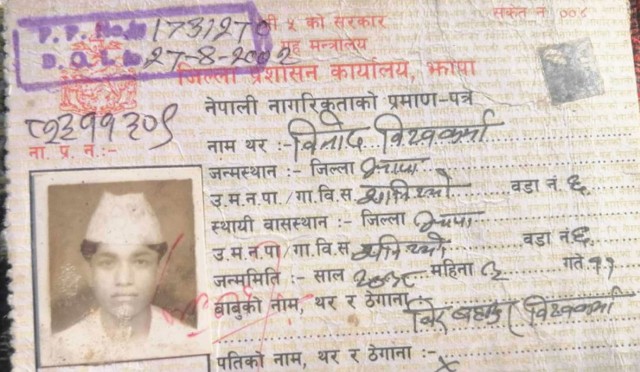 P.P. No. 1731270
D.O.I. 27-8-2002
५ को सरकार
मन्त्रालय
संकेत नं ००४
जिल्ला प्रशासन कार्यालय, झापा
नेपाली नागरिकताको प्रमाण-पत्र
ना. प्र. नं :-
नाम थर :- विनोद विश्वकर्मा
जन्मस्थान :- जिल्ला झापा
उ.म.न.पा./गा.वि.स. वडा नं. ६
स्थायी बासस्थान :- जिल्ला झापा
उ.म.न.पा/गा.वि.स. वडा नं. ६
जन्ममिति :- साल महिना गते ११
बाबुको नाम, थर र ठेगाना विर बहादुर विश्वकर्मा
पतिको नाम, थर र ठेगाना :- x